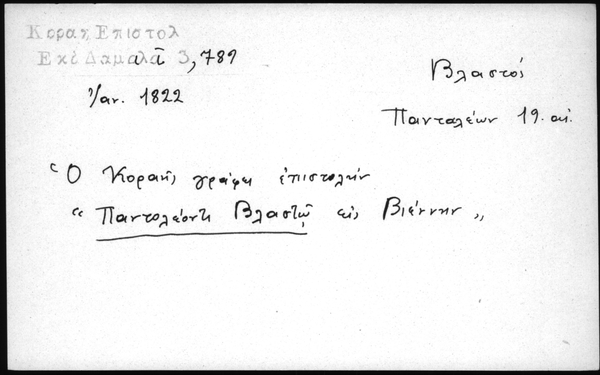 Κοραη Επιστολ
Εκδ Δαμαλᾶ 3,789
Ἰαν. 1822
Βλαστός
Πανταλέων 19. αἰ.
Ὁ Κοραῆς γράφει ἐπιστολήν
“ Πανταλέοντι Βλαστῷ εἰς Βιέννην „